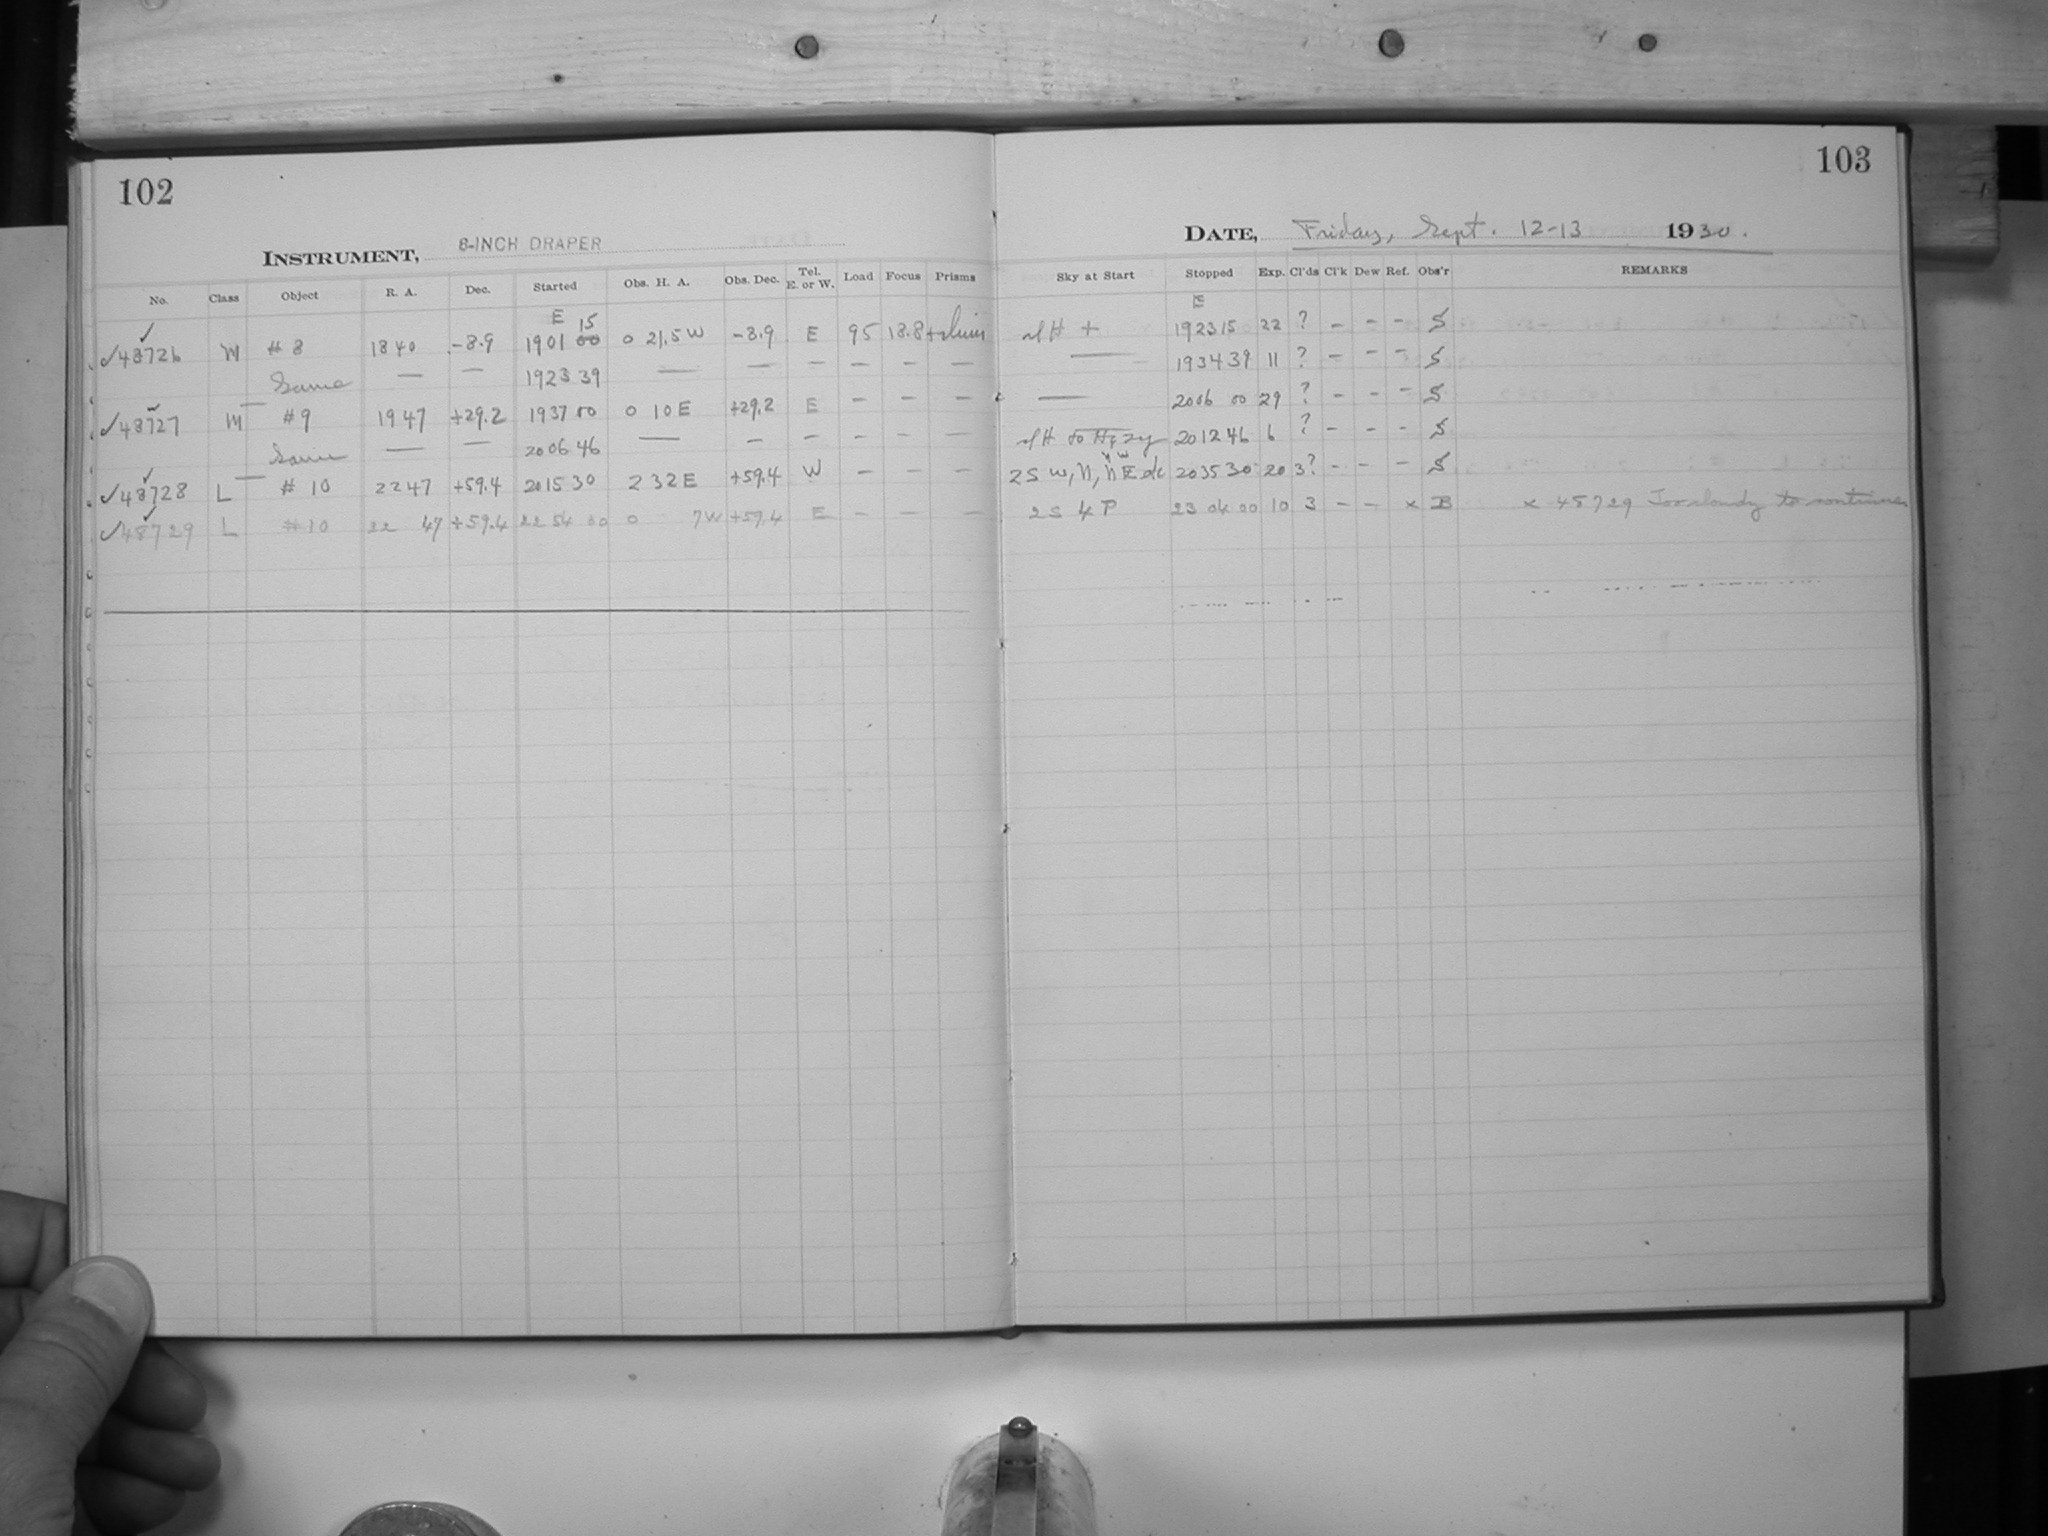 102
103
INSTRUMENT, 8-INCH DRAPER
DATE, Friday, Sept. 12-13 1930.
No. Class Object R. A. Dec. Started Obs. H. A. Obs. Dec. Tel. E. or W. Load Focus Prisms Sky at Start Stopped Exp. Cl'ds Cl'k Dew Ref. Obs'r REMARKS
E 15 E
✓48726 M #8 1840 -8.9 1901 00 0 21.5 W -8.9 E 95 18.8 + 192315 22 ? - - - S
Same — — 1923 39 — — — — — — — 193439 11 ? - - - S
✓48727 M #9 1947 +29.2 1937 00 0 10 E +29.2 E - - - — 2006 00 29 ? - - - S
Same — — 2006 46 — — — — — — to Hazy 2012 46 6 ? - - - S
✓48728 L #10 2247 +59.4 2015 30 2 32 E +59.4 W - - - 2S W, N, 2035 30 20 3? - - - S
✓48729 L #10 22 47 +59.4 22 54 00 0 7W +59.4 E - - - 2S 4P 23 04 00 10 3 - - x B x 48729 Too cloudy to continue